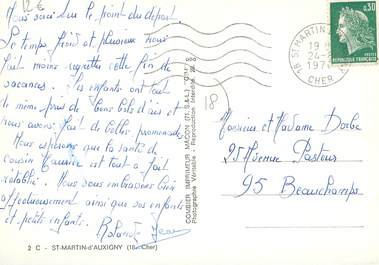 12 €
Nous voici sur le point du départ.
Le temps, froid et pluvieux nous
fait moins regretté cette fin de
vacances. Les enfants ont tout
de même pris de bons bols d'air et
nous avons fait de belles promenades
Nous espérons que la santé de
cousin Maurice est tout a fait
rétablie. Nous vous embrassons bien
affectueusement ainsi que vos enfants
et petits enfants.
Rolande Jean
2 C - ST-MARTIN-d'AUXIGNY (18 - Cher)
COMBIER IMPRIMEUR MACON (71. S.&L.) "CIM"
Photographie Véritable - Reproduction Interdite
18
18 ST MARTIN D'
19 H
24-
197
CHER
0,30
POSTES
REPUBLIQUE FRANÇAISE
Monsieur et Madame
25 Avenue Pasteur
95 Beauchamps